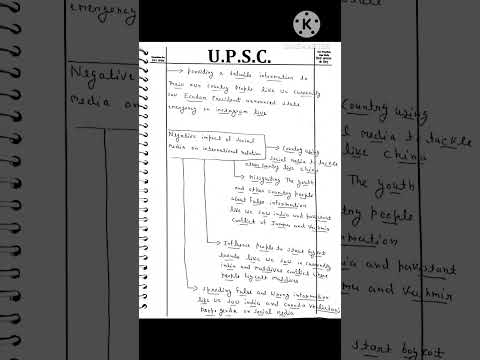 U.P.S.C.
→ Providing a valuable information to
Their own country people like we currently
saw Ecuador President announced state
emergency on instagram live
Negative impact of social
Media on international relation
→ Country using
social media to tackle
other country like china
→ Misguiding The youth
and other country people
about False information
like we saw india and pakistant
conflict of Jammu and Kashmir
→ Influence People to start boycott
trends like we saw in currently
india and maldives conflict where
people boycott maldives
→ Spreading False and wrong information
like we saw india and canada
on social media
emergency
Negative
Media on
Country using
media to tackle
like china
The youth
people
and pakistant
and Kashmir
start boycott